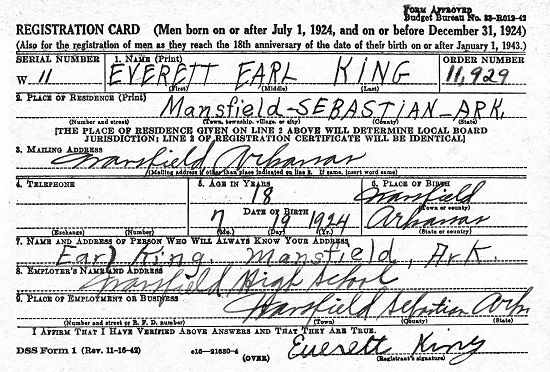 FORM APPROVED
Budget Bureau No. 33-R012-42
REGISTRATION CARD (Men born on or after July 1, 1924, and on or before December 31, 1924)
(Also for the registration of men as they reach the 18th anniversary of the date of their birth on or after January 1, 1943.)
SERIAL NUMBER 1. NAME (Print) ORDER NUMBER
W. 11 EVERETT EARL KING 11,929
(First) (Middle) (Last)
2. PLACE OF RESIDENCE (Print)
Mansfield-SEBASTIAN-ARK.
(Number and street) (Town, township, village, or city) (County) (State)
[THE PLACE OF RESIDENCE GIVEN ON LINE 2 ABOVE WILL DETERMINE LOCAL BOARD
JURISDICTION; LINE 2 OF REGISTRATION CERTIFICATE WILL BE IDENTICAL]
3. MAILING ADDRESS
Mansfield Arkansas
(Mailing address if other than place indicated on line 2. If same, insert word same)
4. TELEPHONE 5. AGE IN YEARS 6. PLACE OF BIRTH
18 Mansfield
DATE OF BIRTH (Town or county)
7 19 1924 Arkansas
(Exchange) (Number) (Mo.) (Day) (Yr.) (State or country)
7. NAME AND ADDRESS OF PERSON WHO WILL ALWAYS KNOW YOUR ADDRESS
Earl King, Mansfield, Ark.
8. EMPLOYER'S NAME AND ADDRESS
Mansfield High School
9. PLACE OF EMPLOYMENT OR BUSINESS
Mansfield Sebastian Ark
(Number and street or R. F. D. number) (Town) (County) (State)
I AFFIRM THAT I HAVE VERIFIED ABOVE ANSWERS AND THAT THEY ARE TRUE.
DSS Form 1 (Rev. 11-16-42) c16-21630-4 Everett King
(OVER) (Registrant's signature)